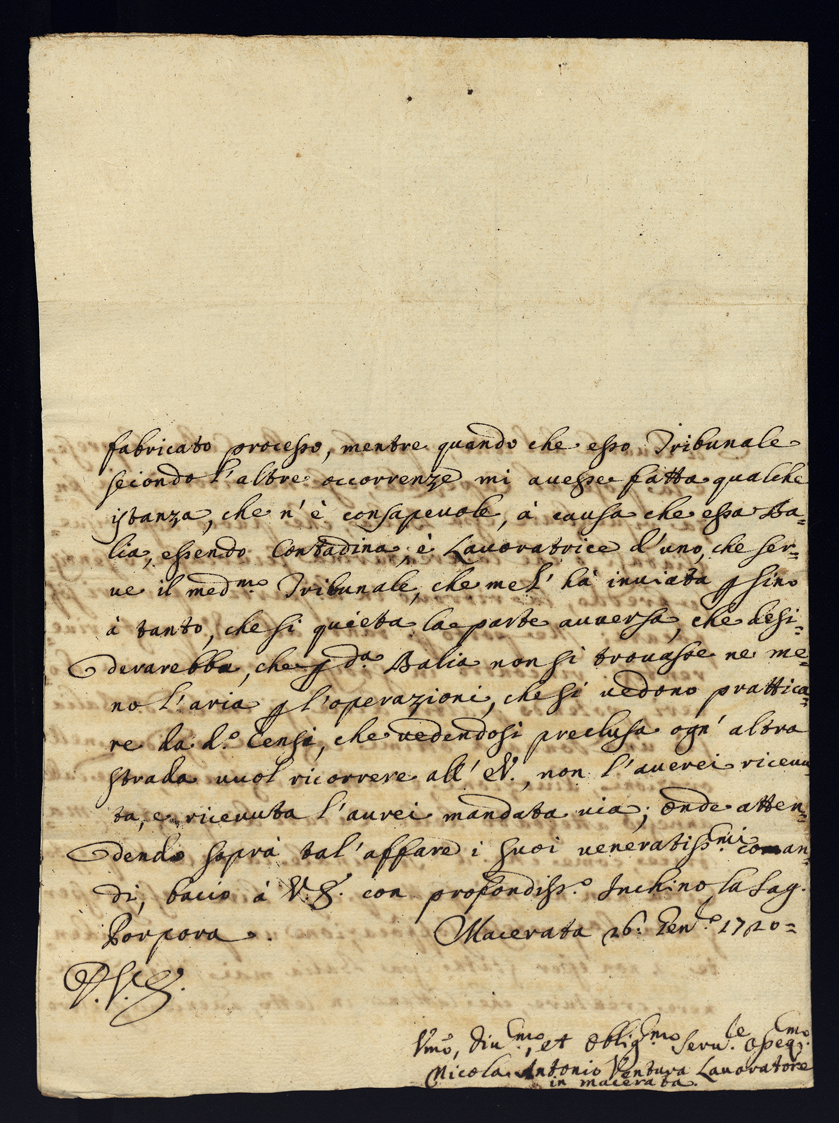 fabricato processo, mentre quando che esso Tribunale
secondo l'altre occorrenze mi avesse fatta qualche
istanza, che n'è consapevole, à causa che essa Ba=
lia, essendo Contadina, è Lavoratrice d'uno, che ser=
ve il med.mo Tribunale, che me l' hà inviata p sino
à tanto, che si quieta la parte avversa, che desi=
derarebbe, che p d.a Balia non si trovasse ne me=
no l'aria p l'operazioni, che si vedono prattica=
re da d.o Censi, che vedendosi preclusa ogn' altra
strada vuol ricorrere all' E.V., non l'averei ricevu
ta, e ricevuta l'avrei mandata via; onde atten=
dendo soprà tal'affare i suoi veneratiss.mi coman=
di, bacio à V.E. con profondiss.o Inchino la Sag.
Porpora.
Macerata 26. Gen.o 1720=
V.E.
Vmo, Div.mo, et Oblig.mo Serv.le Osseq.mo
Nicola Antonio Ventura Lavoratore
in macerata.